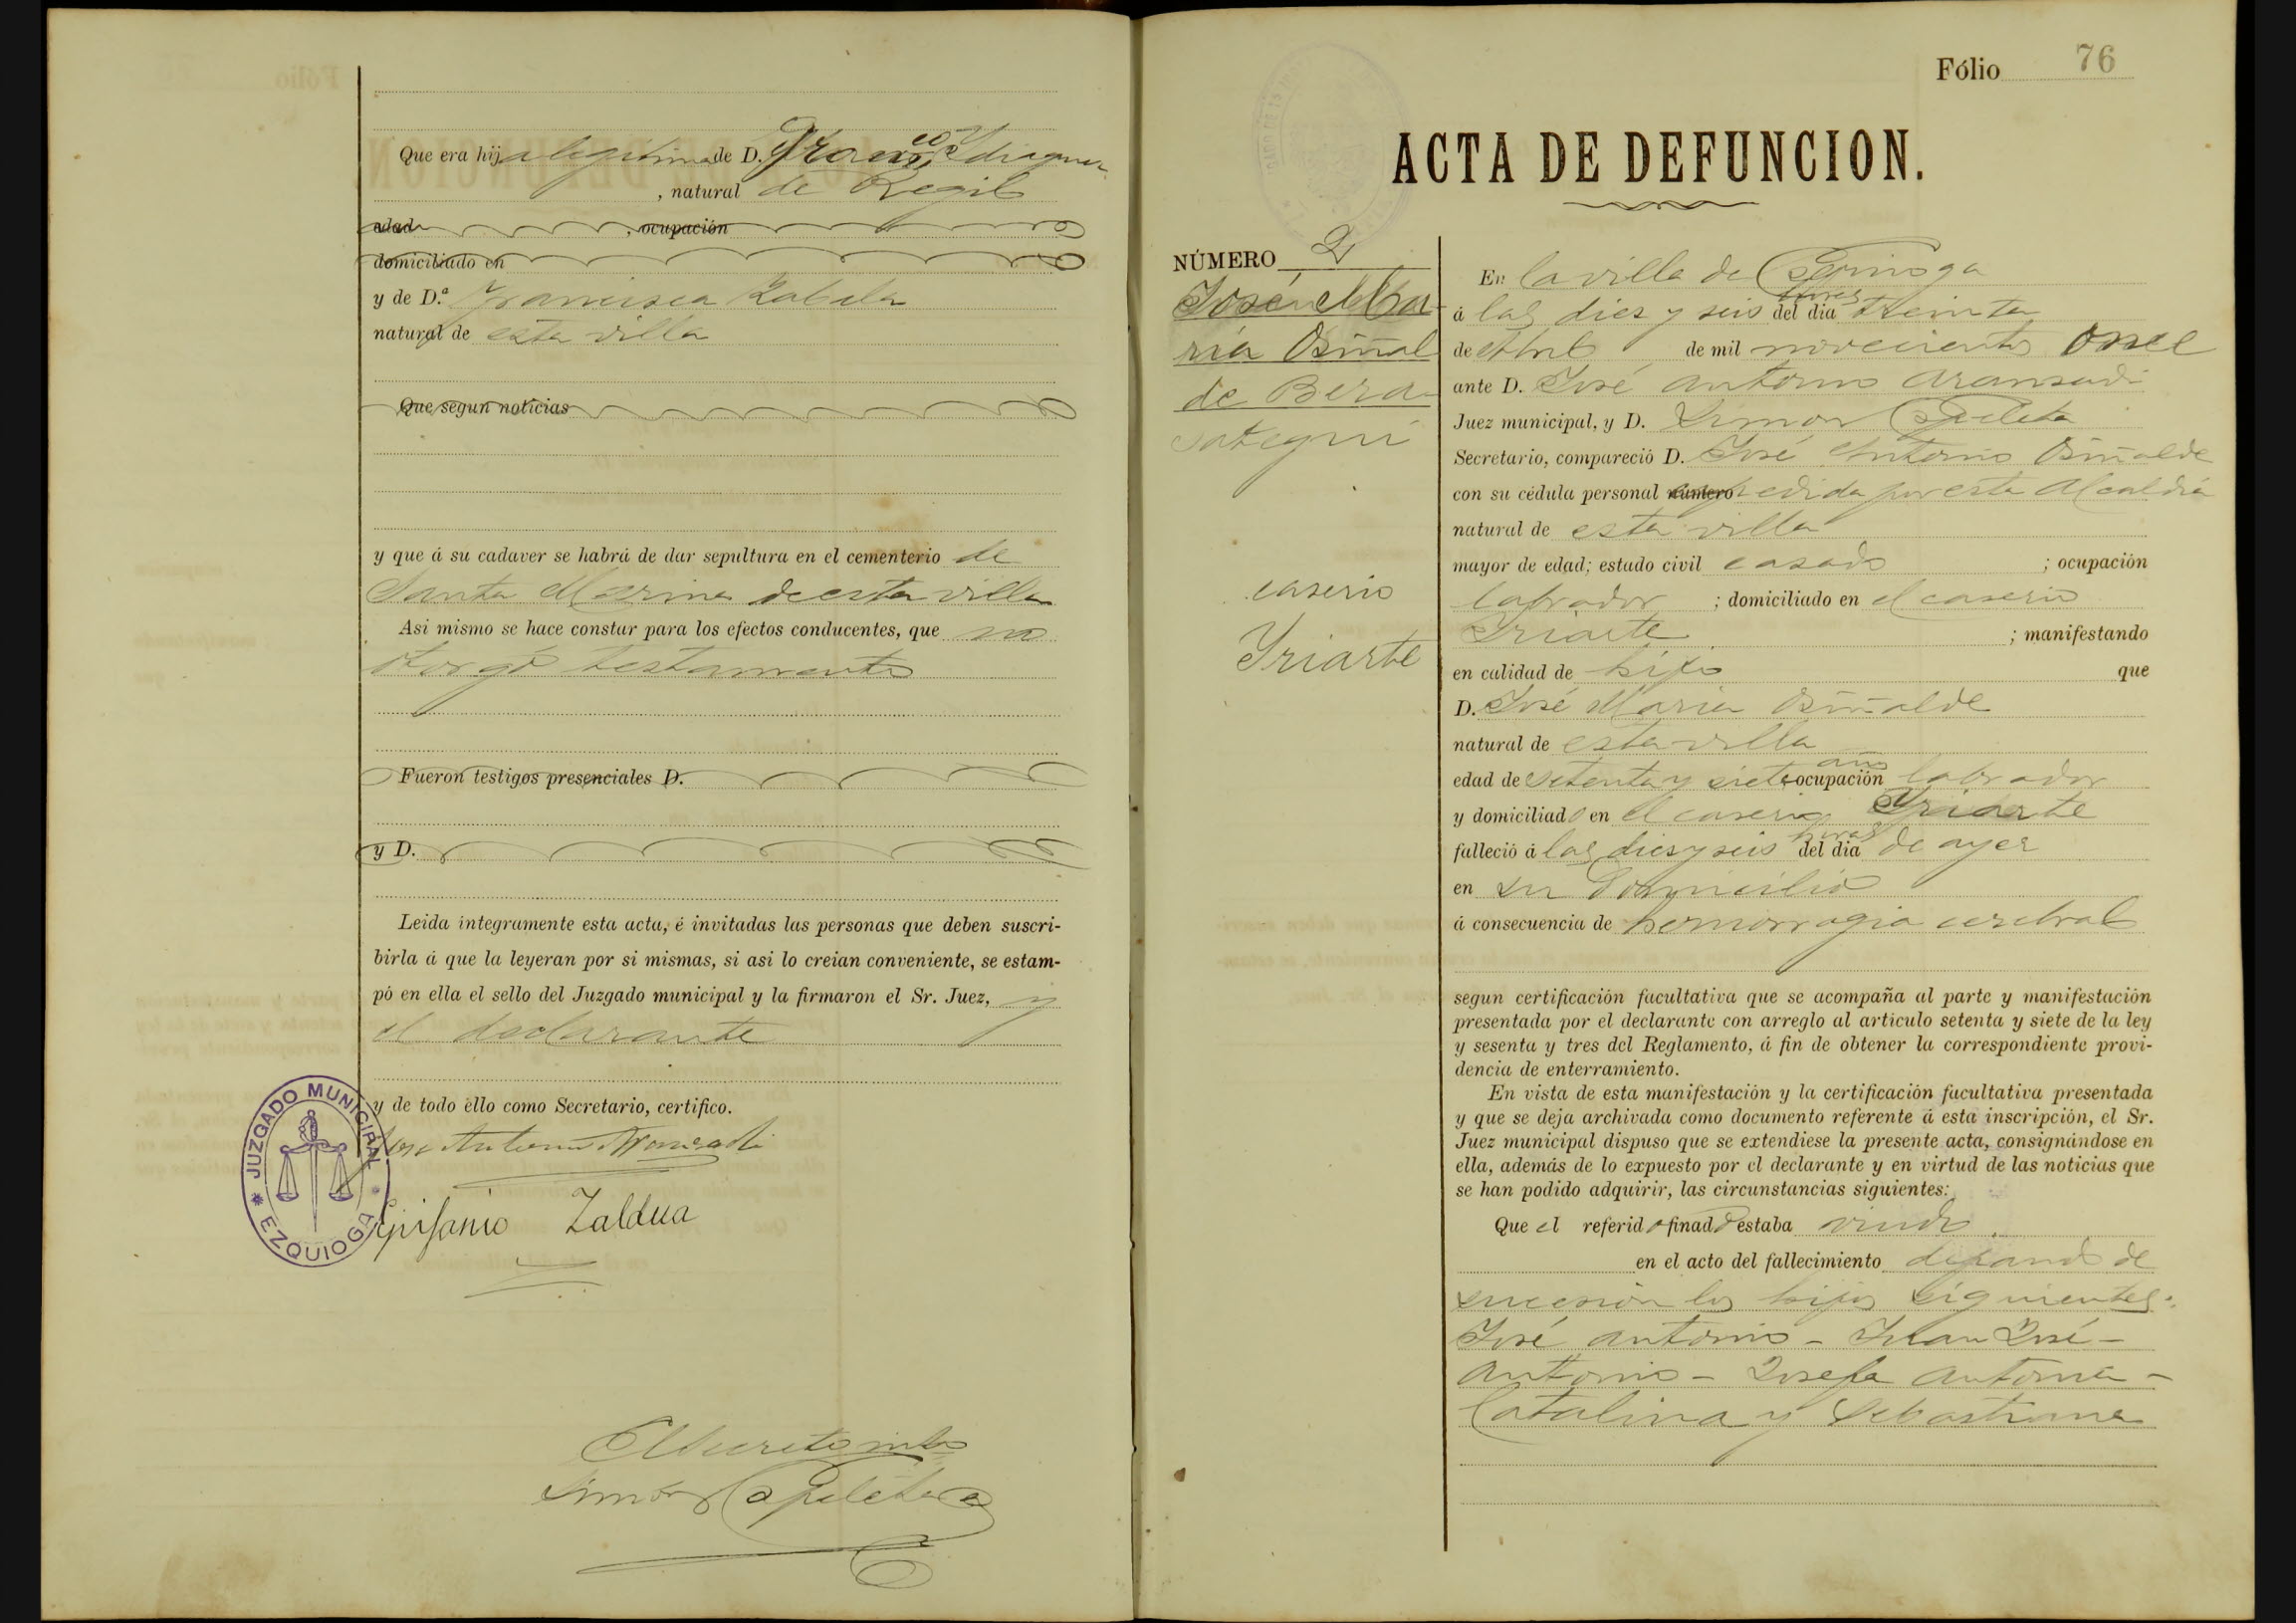 Que era hija legitima de D. Francisco
, natural de Regil
edad , ocupación
domiciliado en
y de D.ª Francisca Zabala
natural de esta villa
Que segun noticias
y que á su cadaver se habrá de dar sepultura en el cementerio de
Santa Marina de esta villa
Asi mismo se hace constar para los efectos conducentes, que no
otorgó testamento
Fueron testigos presenciales D.
y D.
Leida íntegramente esta acta, é invitadas las personas que deben suscri-
birla á que la leyeran por si mismas, si asi lo creian conveniente, se estam-
pó en ella el sello del Juzgado municipal y la firmaron el Sr. Juez, y
el declarante
y de todo ello como Secretario, certifico.
José Antonio Aransadi
JUZGADO MUNICIPAL
* EZQUIOGA
Epifanio Zaldua
El Secretario
Simon
Fólio 76
ACTA DE DEFUNCION.
NÚMERO 2
José Ma-
ria Osiñal
de Bera-
sategui
caserio
Yriarte
En la villa de Ezquioga
á las diez y seis horas del dia treinta
de Abril de mil novecientos once
ante D. José Antonio Aransadi
Juez municipal, y D. Simon
Secretario, compareció D. José Antonio Osiñalde
con su cédula personal número expedida por esta Alcaldia
natural de esta villa
mayor de edad; estado civil casado ; ocupación
labrador ; domiciliado en el caserio
Iriarte ; manifestando
en calidad de hijo que
D. José Maria Osiñalde
natural de esta villa
edad de setenta y siete años ocupación labrador
y domiciliado en el caserio Yriarte
falleció á las diez y seis horas del dia de ayer
en su domicilio
á consecuencia de hemorragia cerebral
segun certificación facultativa que se acompaña al parte y manifestación
presentada por el declarante con arreglo al articulo setenta y siete de la ley
y sesenta y tres del Reglamento, á fin de obtener la correspondiente provi-
dencia de enterramiento.
En vista de esta manifestación y la certificación facultativa presentada
y que se deja archivada como documento referente á esta inscripción, el Sr.
Juez municipal dispuso que se extendiese la presente acta, consignándose en
ella, además de lo expuesto por el declarante y en virtud de las noticias que
se han podido adquirir, las circunstancias siguientes:
Que el referido finado estaba viudo
en el acto del fallecimiento dejando de
sucesion los hijos siguientes:
José Antonio - Juan José -
Antonio - Josefa Antonia -
Catalina y Sebastiana